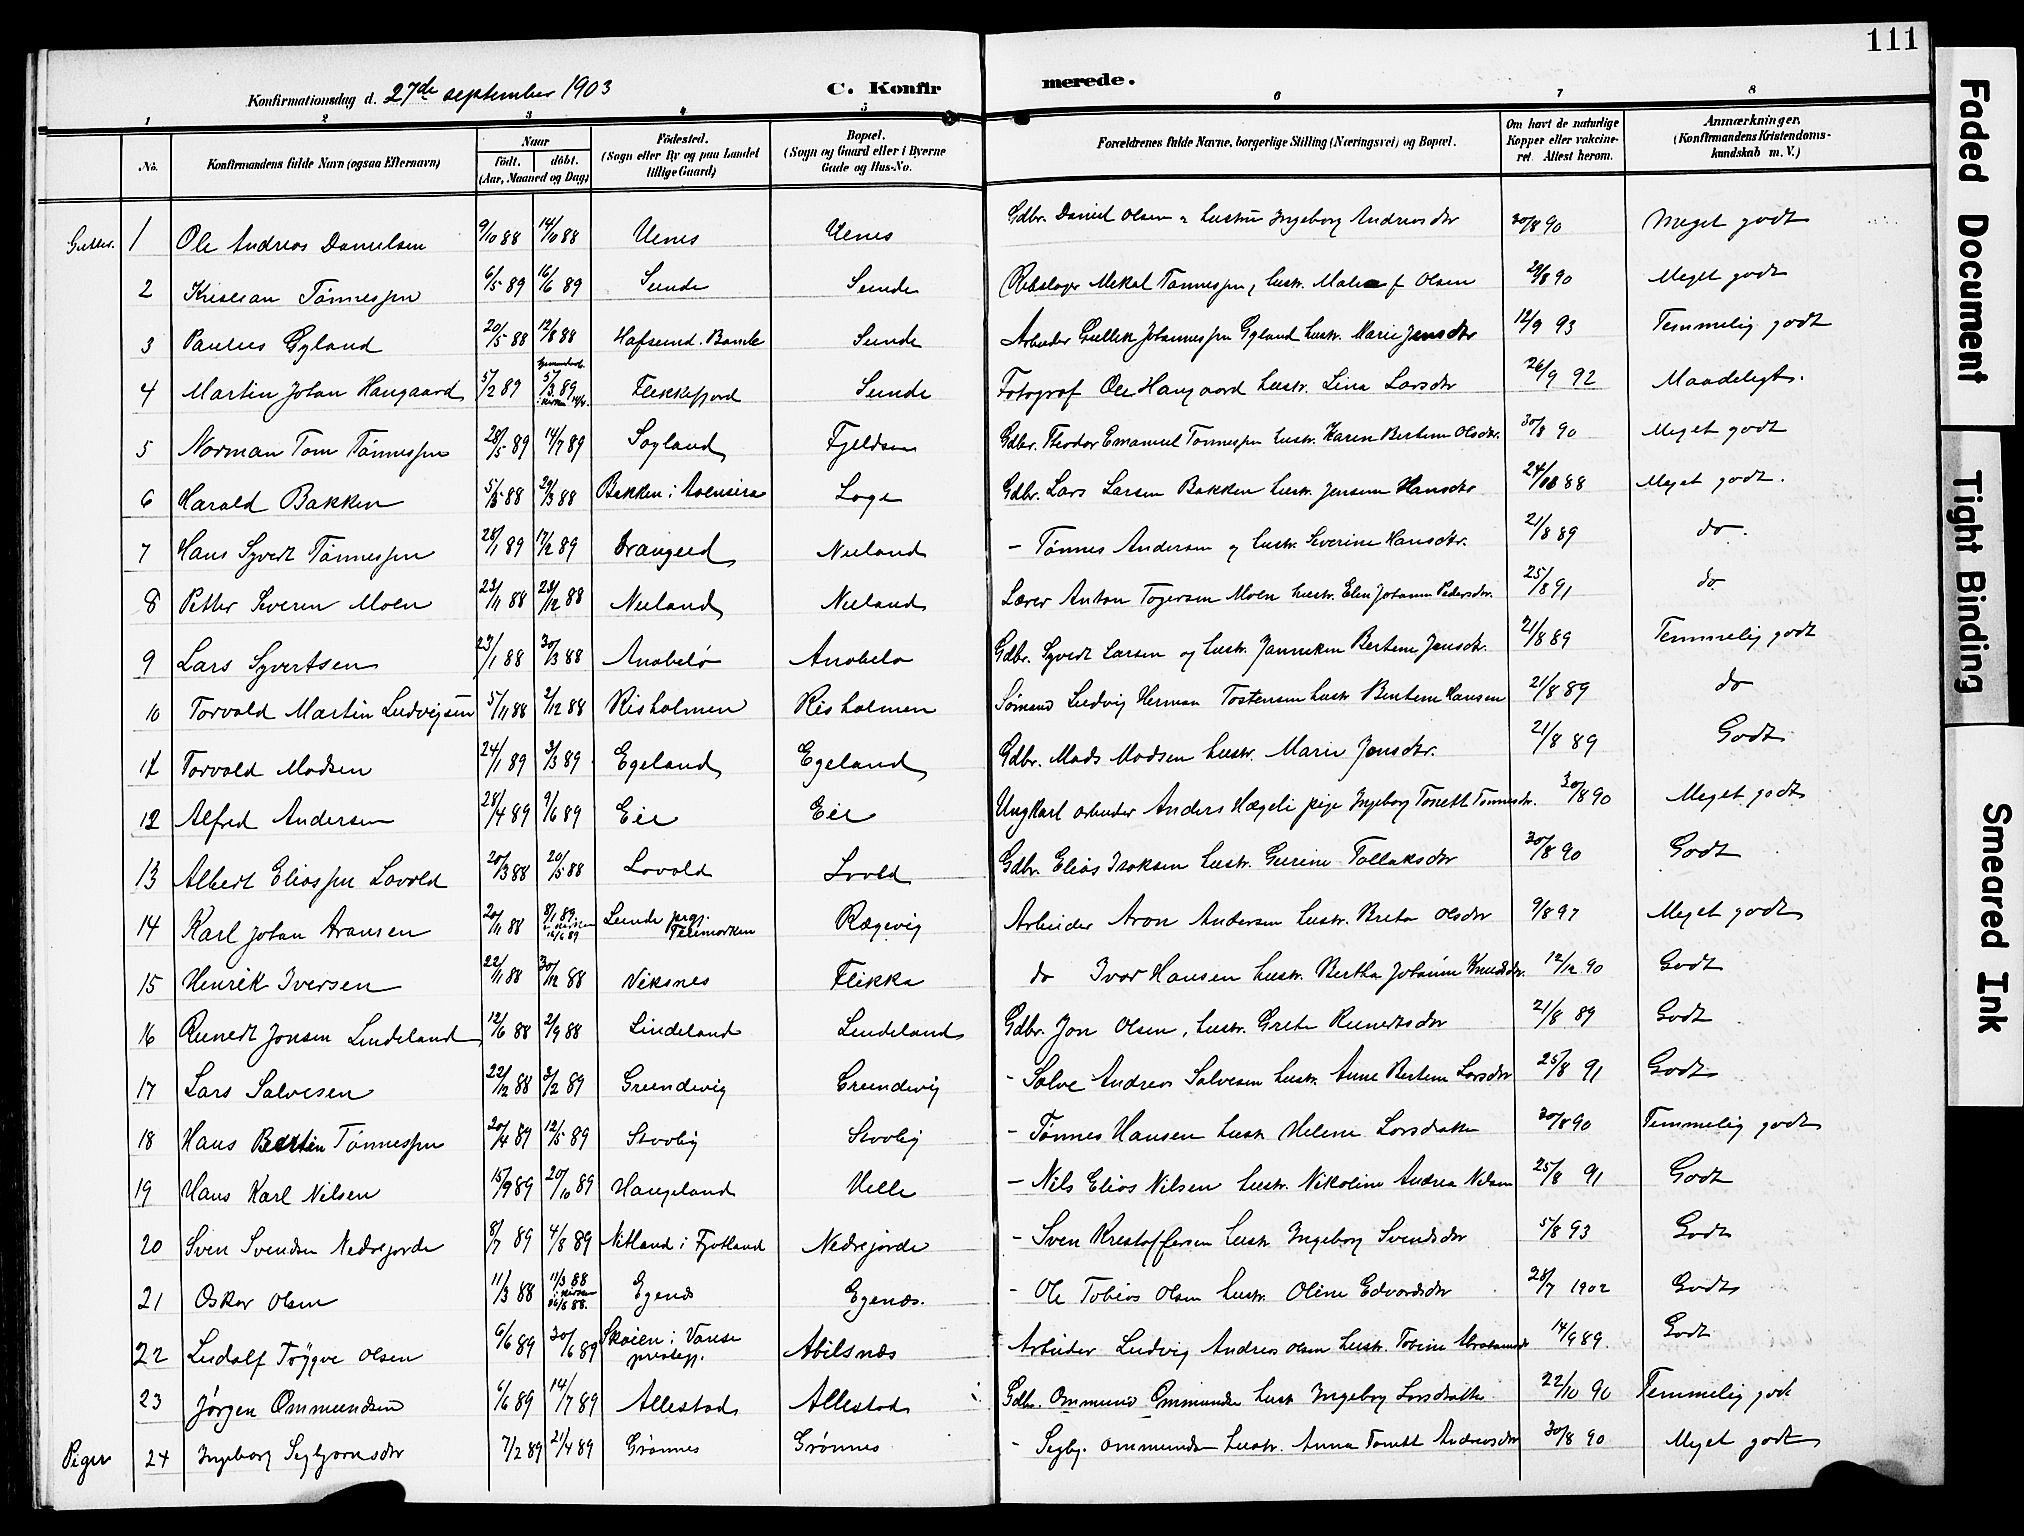 111
Konfirmationsdag d. 27de september 1903 C. Konfirmerede.
1 2 3 4 5 6 7 8
No. Konfirmandens fulde Navn (ogsaa Efternavn) Naar født. døbt. (Aar, Maaned og Dag) Fødested. (Sogn eller By og paa Landet tillige Gaard) Bopæl. (Sogn og Gaard eller i Byerne Gade og Hus-No. Forældrenes fulde Navne, borgerlige Stilling (Næringsvei) og Bopæl. Om havt de naturlige Kopper eller vakcineret. Attest herom. Anmærkninger. (Konfirmandens Kristendomskundskab m. V.)
Gutter. 1 Ole Andreas Danielsen 9/10 88 14/10 88 Uenes Uenes Gdbr. Daniel Olsen & hustru Ingeborg Andreasdtr 30/8 90 Meget godt
2 Kristian Tønnessen 6/5 89 16/6 89 Sunde Sunde Rebslager Mekal Tønnessen, hustr. f Olsen 29/8 90 Meget godt
3 Paulus Gyland 20/5 88 12/8 88 Hafsund. Bamle Sunde Arbeider Gullek Johannessen Gyland hustr. Marie Jensdtr 12/9 93 Temmelig godt
4 Martin Johan Haugaard 5/2 89 5/3 89 Flekkefjord Sunde Fotograf Ole Haugaard hustr. Lina Larsdtr 26/9 92 Maadeligt.
5 Norman Tom Tønnessen 28/5 89 14/7 89 Sogland Fjeldsen Gdbr. Theodor Emanuel Tønnessen hustr. Karen Bertine Olsdtr. 30/8 90 Meget godt
6 Harald Bakken 5/3 88 29/3 88 Bakken i Aaensira Loge Gdbr. Lars Larsen Bakken hustr. Jensine Hansdtr 24/10 88 Meget godt.
7 Hans Syvert Tønnessen 28/1 89 17/2 89 Drangeid Nuland - Tønnes Andersen og hustr. Severine Hansdtr. 21/8 89 do.
8 Petter Severin Moen 23/11 88 28/12 88 Nuland Nuland Lærer Anton Togersen Moen hustr. Elen Johanne Pedersdtr. 25/8 91 do
9 Lars Syvertsen 23/1 88 30/3 88 Anabelø Anabelø Gdbr. Syvert Larsen og hustr. Janneken Bertine Jensdtr. 21/8 89 Temmelig godt
10 Torvald Martin Ludvigsen 5/11 88 2/12 88 Risholmen Risholmen Sømand Ludvig Herman Tostensen hustr Bertine Hansen 21/8 89 do
11 Torvald Madsen 24/1 89 3/3 89 Egeland Egeland Gdbr. Mads Madsen hustr. Marie Jensdtr. 21/8 89 Godt
12 Alfred Andersen 28/4 89 9/6 89 Eie Eie Ungkarl arbeider Anders Hægeli pige Ingeborg Tonette Tønnesdtr. 30/8 90 Meget godt
13 Albert Eliassen Lavold 20/3 88 20/5 88 Lavold Lvold Gdbr. Elias Isaksen hustr. Gurine Tollaksdtr 30/8 90 Godt
14 Karl Johan Aransen 20/11 88 8/1 89 i kirken 16/6 89 Lunde prgj. Telemarken Rægevig Arbeider Aron Andersen hustr. Berta Olsdtr 9/8 97 Meget godt
15 Henrik Iversen 22/11 88 30/12 88 Viksnes Flikka do Ivar Hansen hustr. Bertha Johanne Knudsdtr. 12/12 90 Godt
16 Runert Jonsen Lindeland 12/6 88 2/9 88 Lindeland Lindeland Gdbr. Jon Olsen, hustr. Grete Runertsdtr 21/8 89 Godt
17 Lars Salvesen 22/12 88 3/2 89 Grundevig Grundevig - Salve Andreas Salvesen hustr. Anne Bertine Larsdtr 25/8 91 Godt
18 Hans Bertin Tønnessen 20/4 89 12/5 89 Stvolig Stvolig - Tønnes Hansen hustr Helene Larsdatter 30/8 90 Temmelig godt
19 Hans Karl Nilsen 15/9 89 20/10 89 Haugeland Helle - Nils Elias Nilsen hustr. Nikoline Andrea Nilsen 25/8 91 Godt
20 Sven Svendsen Nedrejorde 8/7 89 4/8 89 Netland i Fjotland Nedrejorde - Sven Kristoffersen hustr Ingeborg Svendsdtr 5/8 93 Godt
21 Oskar Olsen 11/3 88 11/3 88 i kirken 26/8 88. Egenæs Egenæs. - Ole Tobias Olsen hustr. Oline Edvardsdtr 28/7 1902 Godt
22 Ludolf Trygve Olsen 6/6 89 30/6 89 Skøien i Vanse prestegj. Abilsnæs Arbeider Ludvig Andreas Olsen hustr. Tobine Abrahamsdt 14/9 89. Godt
23 Jørgen Ommundsen 6/6 89 14/7 89 Allestad Allestad Gdbr. Ommund Ommundsen hustr Ingeborg Larsdatter 22/10 90 Temmelig godt
Piger 24 Ingeborg Segbjørnsdtr 7/2 89 21/4 89 Grønnes Grønnes - Segbj. Ommundsen hustr. Anna Tonette Andreasdtr 30/8 90 Meget godt
Faded Document
Tight Binding
Smeared Ink